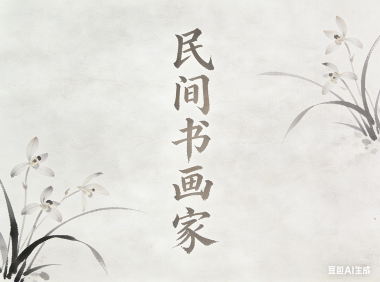 民间书画家
豆包AI生成